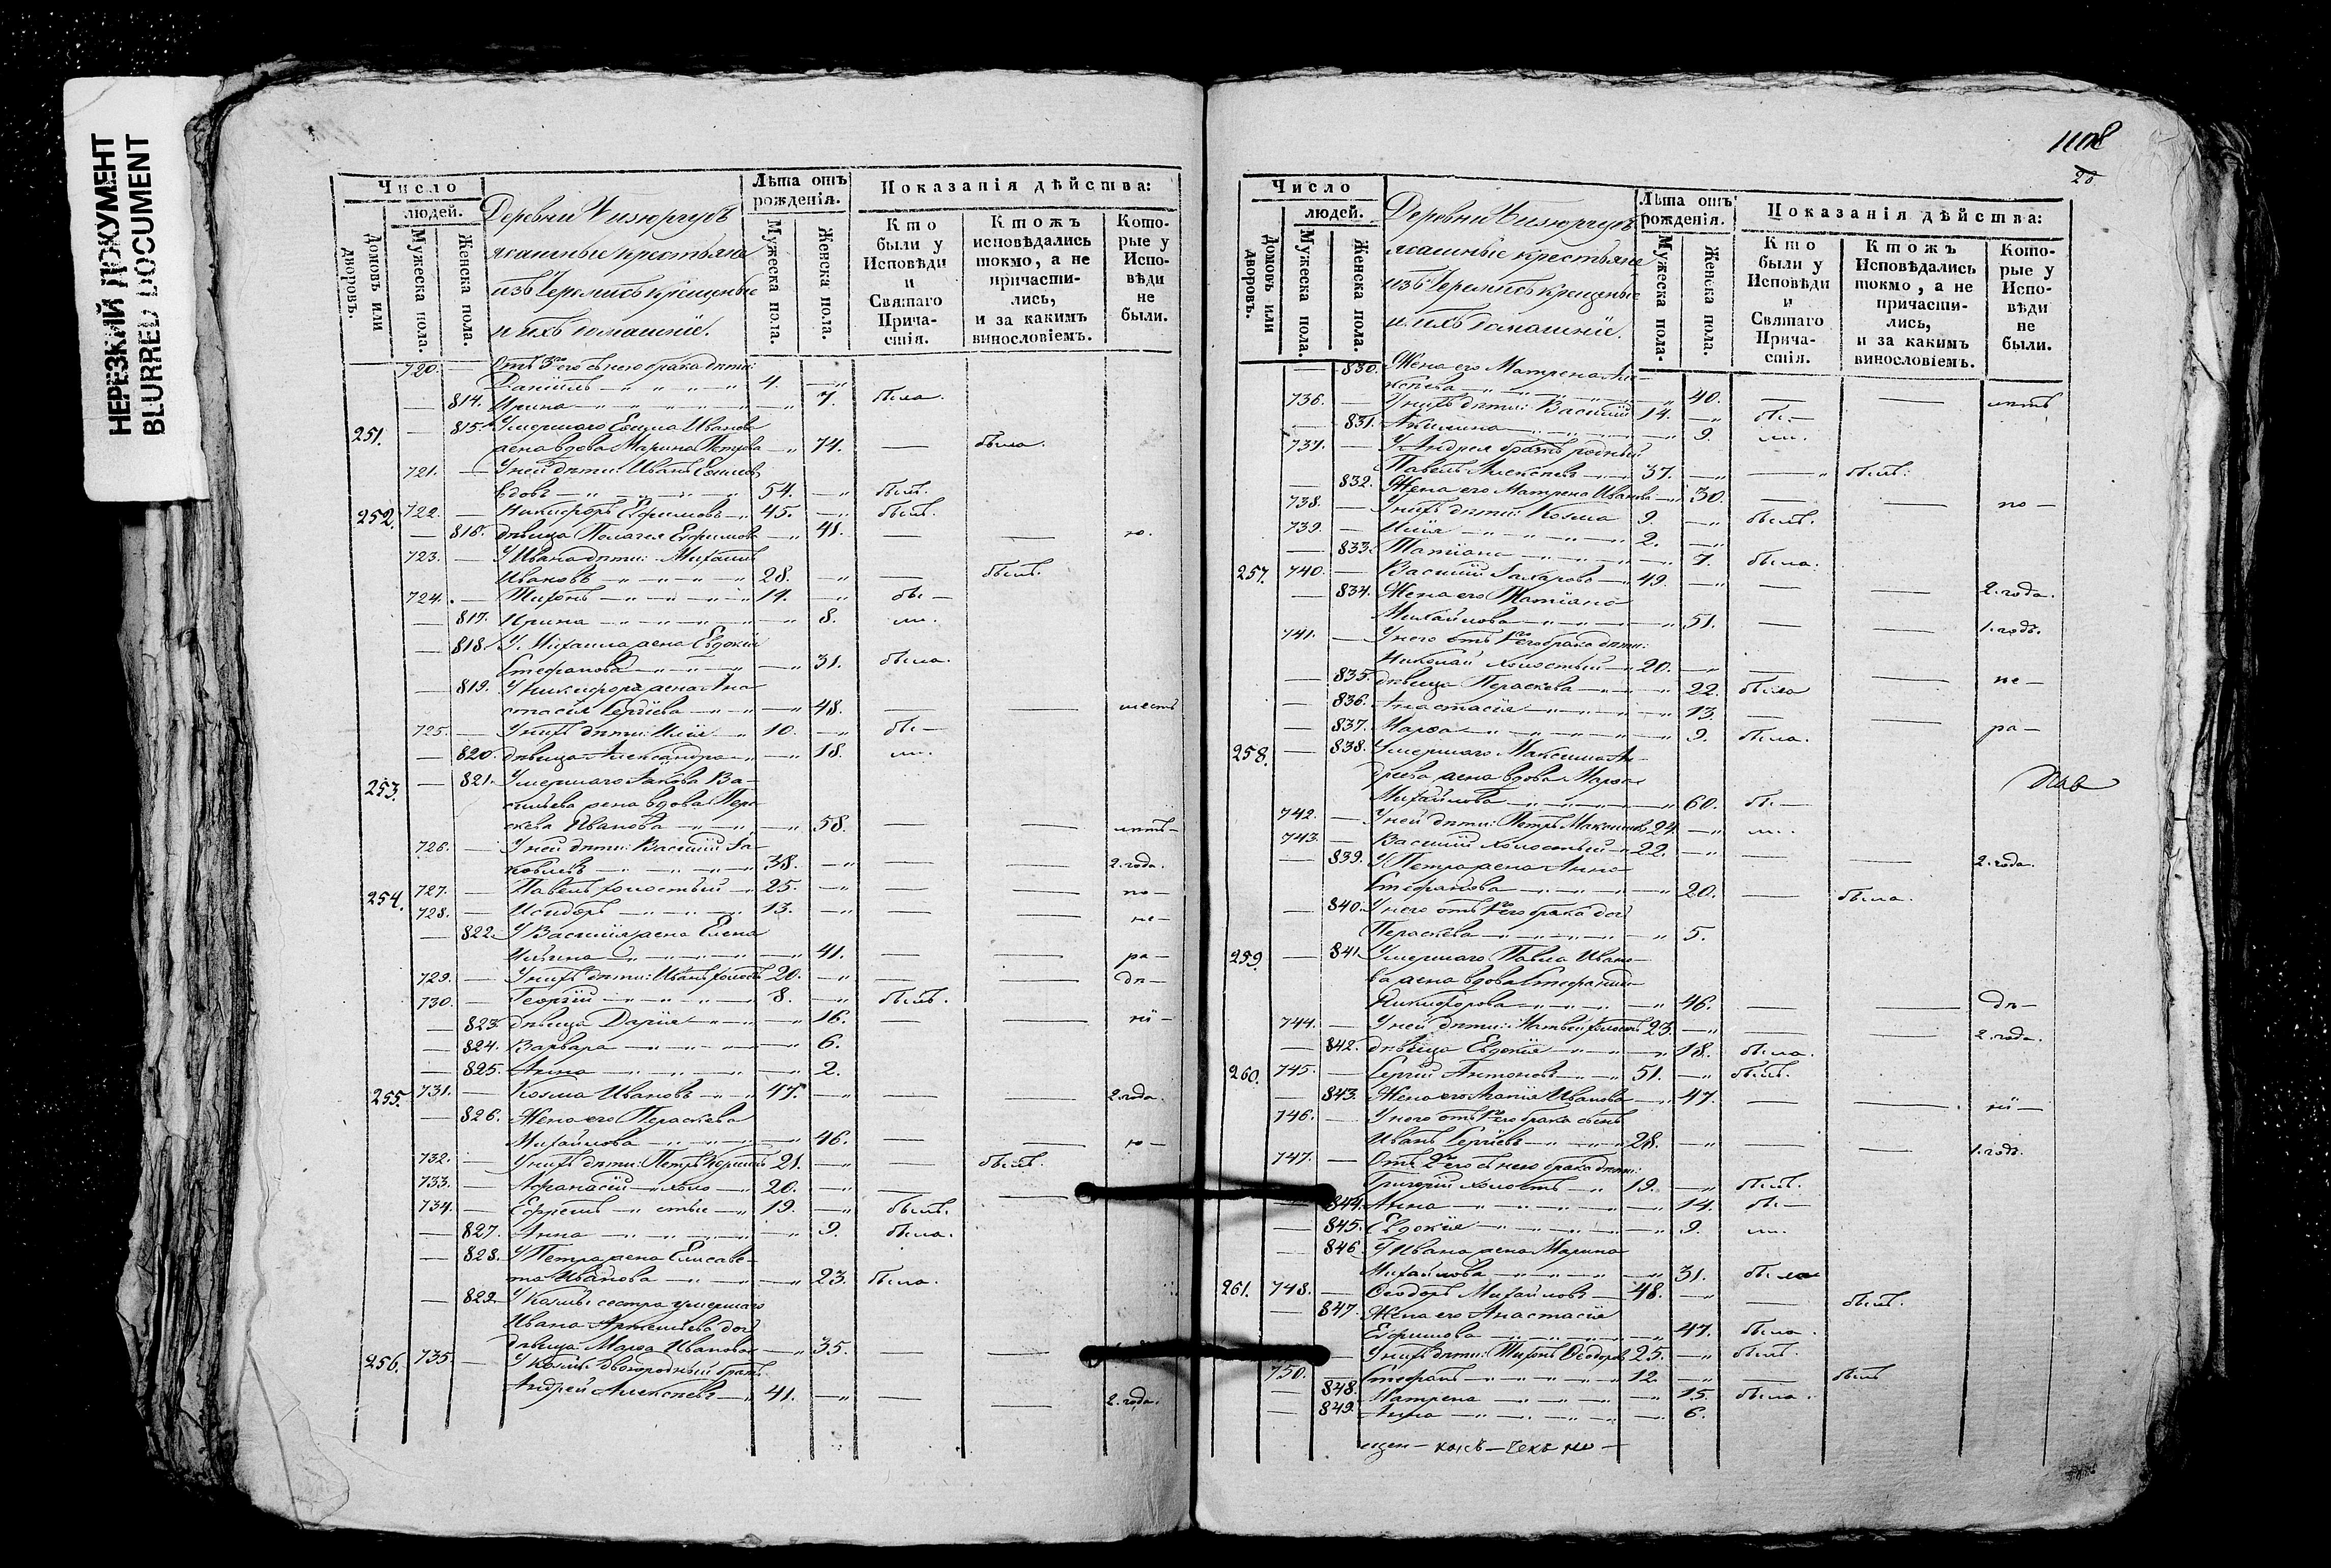 НЕРЕЗКИЙ ДОКУМЕНТ
BLURRED DOCUMENT
Число
людей.
Домовъ или дворовъ.
Мужеска пола.
Женска пола.
Деревни
ясашные крестьяне
изъ Черемисъ крещеные
и ихъ домашніе.
Лѣта отъ рожденія.
Мужеска пола.
Женска пола.
Показанія дѣйства:
Кто были у Исповѣди и Святаго Причастія.
Ктожъ исповѣдались токмо, а не причастились, и за какимъ винословіемъ.
Которые у Исповѣди не были.
720. — Отъ 3го его съ нею брака дѣти:
Даніилъ 4.
— 814. Ирина 7. была.
251. — 815. Умершаго Ефима Иванова
жена вдова Марина Петрова 74. — была.
721. — У ней дѣти: Иванъ Ефимовъ
вдовъ 54. былъ.
252. 722. — Никифоръ Ефимовъ 45. былъ.
— 816. дѣвица Пелагея Ефимова 41. — — ю.
723. — У Ивана дѣти: Михаилъ
Ивановъ 28. — былъ.
724. — Тихонъ 14. бы —
— 817. Ирина 8. ли.
— 818. У Михаила жена Евдокія
Стефанова 31. была.
— 819. У Никифора жена Ана
стасія Сергіева 48. — —
725. — У нихъ дѣти: Илія 10. бы —
— 820. дѣвица Александра 18. ли.
253. — 821. Умершаго Іакова Ва-
сильева жена вдова Пара
скева Иванова 58. — —
726. — У ней дѣти: Василій Іа-
ковлевъ 38. — — 2. года.
254. 727. — Павелъ холостый 25. — — по —
728. — Исидоръ 13. — — не —
— 822. У Василія жена Елена
Ильина 41. — — ра —
729. — У нихъ дѣти: Иванъ холостъ 20. — — дѣ —
730. — Георгій 8. былъ.
— 823. дѣвица Дарія 16. — — нi —
— 824. Варвара 6.
— 825. Анна 2.
255. 731. — Козма Ивановъ 47. — — 2. года.
— 826. Жена его Параскева
Михайлова 46. — — ю —
732. — У нихъ дѣти: Петръ 21. — былъ.
733. — Афанасій холо 20. — —
734. — Ефремъ стые 19. былъ.
— 827. Анна 9. была.
— 828. У Петра жена Елисаве-
та Иванова 23. была.
— 829. У Козмы сестра умершаго
Ивана Артемьева дочь
дѣвица Марѳа Иванова 35. — —
256. 735. — У Козмы двоюродный братъ
Андрей Алексѣевъ 41. — — 2. года.
1108
20
Число
людей.
Домовъ или дворовъ.
Мужеска пола.
Женска пола.
Деревни
ясашные крестьяне
изъ Черемисъ крещеные
и ихъ домашніе.
Лѣта отъ рожденія.
Мужеска пола.
Женска пола.
Показанія дѣйства:
Кто были у Исповѣди и Святаго Причастія.
Ктожъ Исповѣдались токмо, а не причастились, и за какимъ винословіемъ.
Которые у Исповѣди не были.
— 830. Жена его Матрена Але-
ксѣева 40. — —
736. — У нихъ дѣти: Василій 14. бы —
— 831. Акилина 9. ли.
737. — У Андрея братъ родный
Павелъ Алексѣевъ 37. — былъ.
— 832. Жена его Матрена Иванова 30. — — по —
738. — У нихъ дѣти: Козма 9. былъ.
739. — Илія 2.
— 833. Татіана 7. была.
257. 740. — Василій Захаровъ 49. — — 2. года.
— 834. Жена его Татіана
Михайлова 51. — — 1. годъ.
741. — У него отъ 1го его брака дѣти:
Николай холостый 20. — — не —
— 835. дѣвица Параскева 22. была
— 836. Анастасія 13. — — ра —
— 837. Марѳа 9. была.
258. — 838. Умершаго Максима Ан-
дреева жена вдова Марѳа
Михайлова 60. бы —
742. — У ней дѣти: Петръ Максимовъ 24. ли.
743. — Василій холостый 22. — — 2. года.
— 839. У Петра жена Анна
Стефанова 20. — была.
— 840. У него отъ 1го его брака дочь
Параскева 5.
259. — 841. Умершаго Павла Ивано-
ва жена вдова Стефанида
Никифорова 46. — — дѣ —
744. — У ней дѣти: Матвей холостъ 23. — — 2. года.
— 842. дѣвица Евдокія 18. была.
260. 745. — Сергій Антоновъ 51. былъ.
— 843. Жена его Иванова 47. — — нi —
746. — У него отъ 1го его брака сынъ
Иванъ Сергіевъ 28. — — 1. годъ.
747. — Отъ 2го его съ нею брака дѣти:
Григорій холостъ 19. былъ.
844. Анна 14. бы —
— 845. Евдокія 9. ли.
— 846. У Ивана жена Марина
Михайлова 31. была
261. 748. — Ѳеодоръ Михайловъ 48. — былъ.
— 847. Жена его Анастасія
Ефимова 47. была.
— У нихъ дѣти: Тихонъ Ѳеодоровъ 25. былъ.
750. — Стефанъ 12. — былъ
— 848. Матрена 15. была.
— 849. Анна 6.